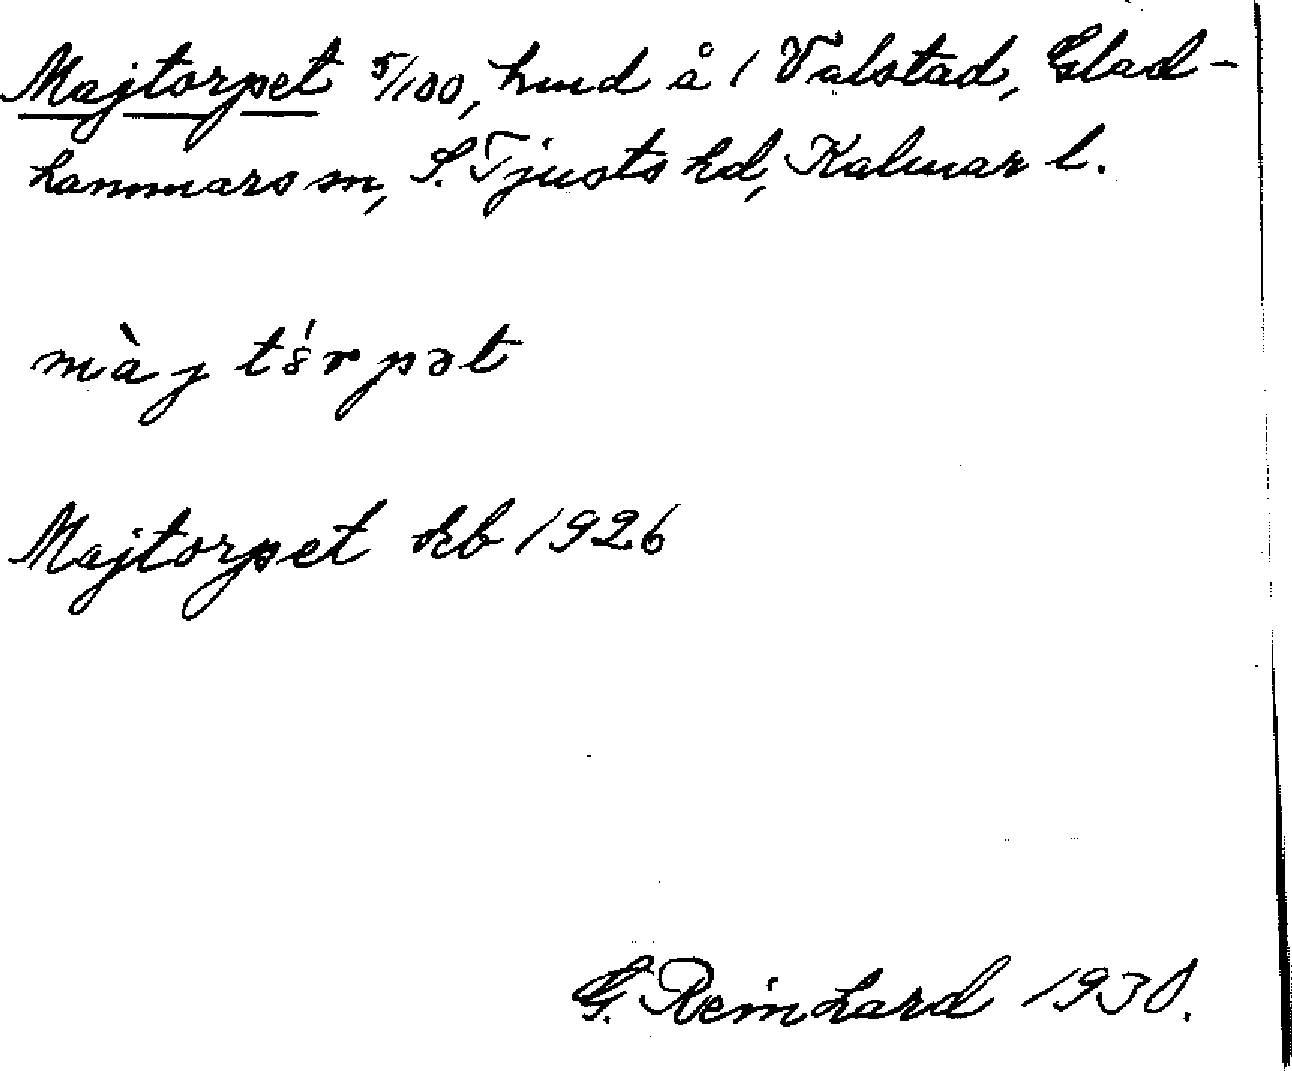 Majtorpet 5/100, hmd å 1 Valstad, Glad-
hammars sn, S. Tjusts hd, Kalmar l.
màj tórpət
Majtorpet kb 1926
G. Reinhard 1930.